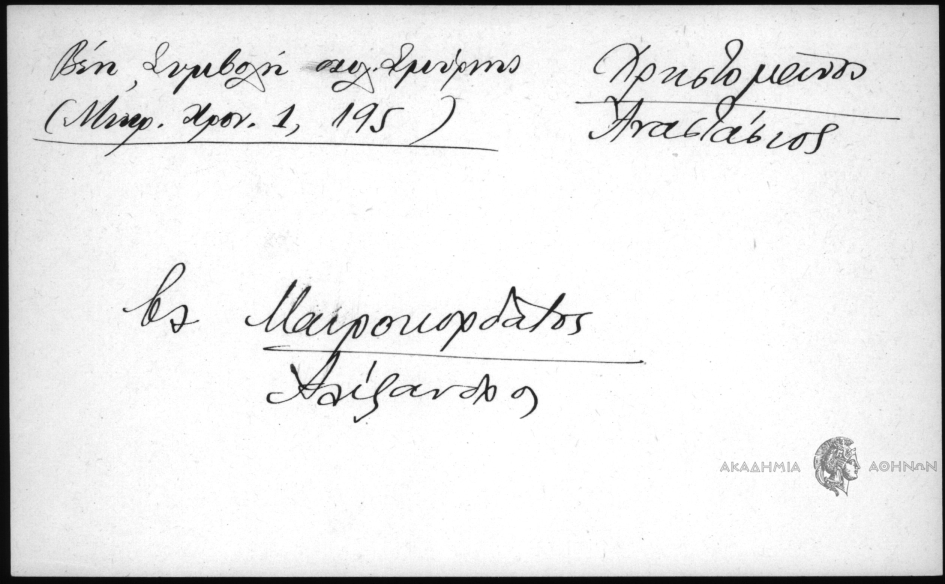 Βέη, Συμβολή σχολ. Σμύρνης
(Μικρ. Χρον. 1, 195)
Χρηστομάνος
Αναστάσιος
βλ Μαυροκορδάτος
Αλέξανδρος
ΑΚΑΔΗΜΙΑ ΑΘΗΝΩΝ